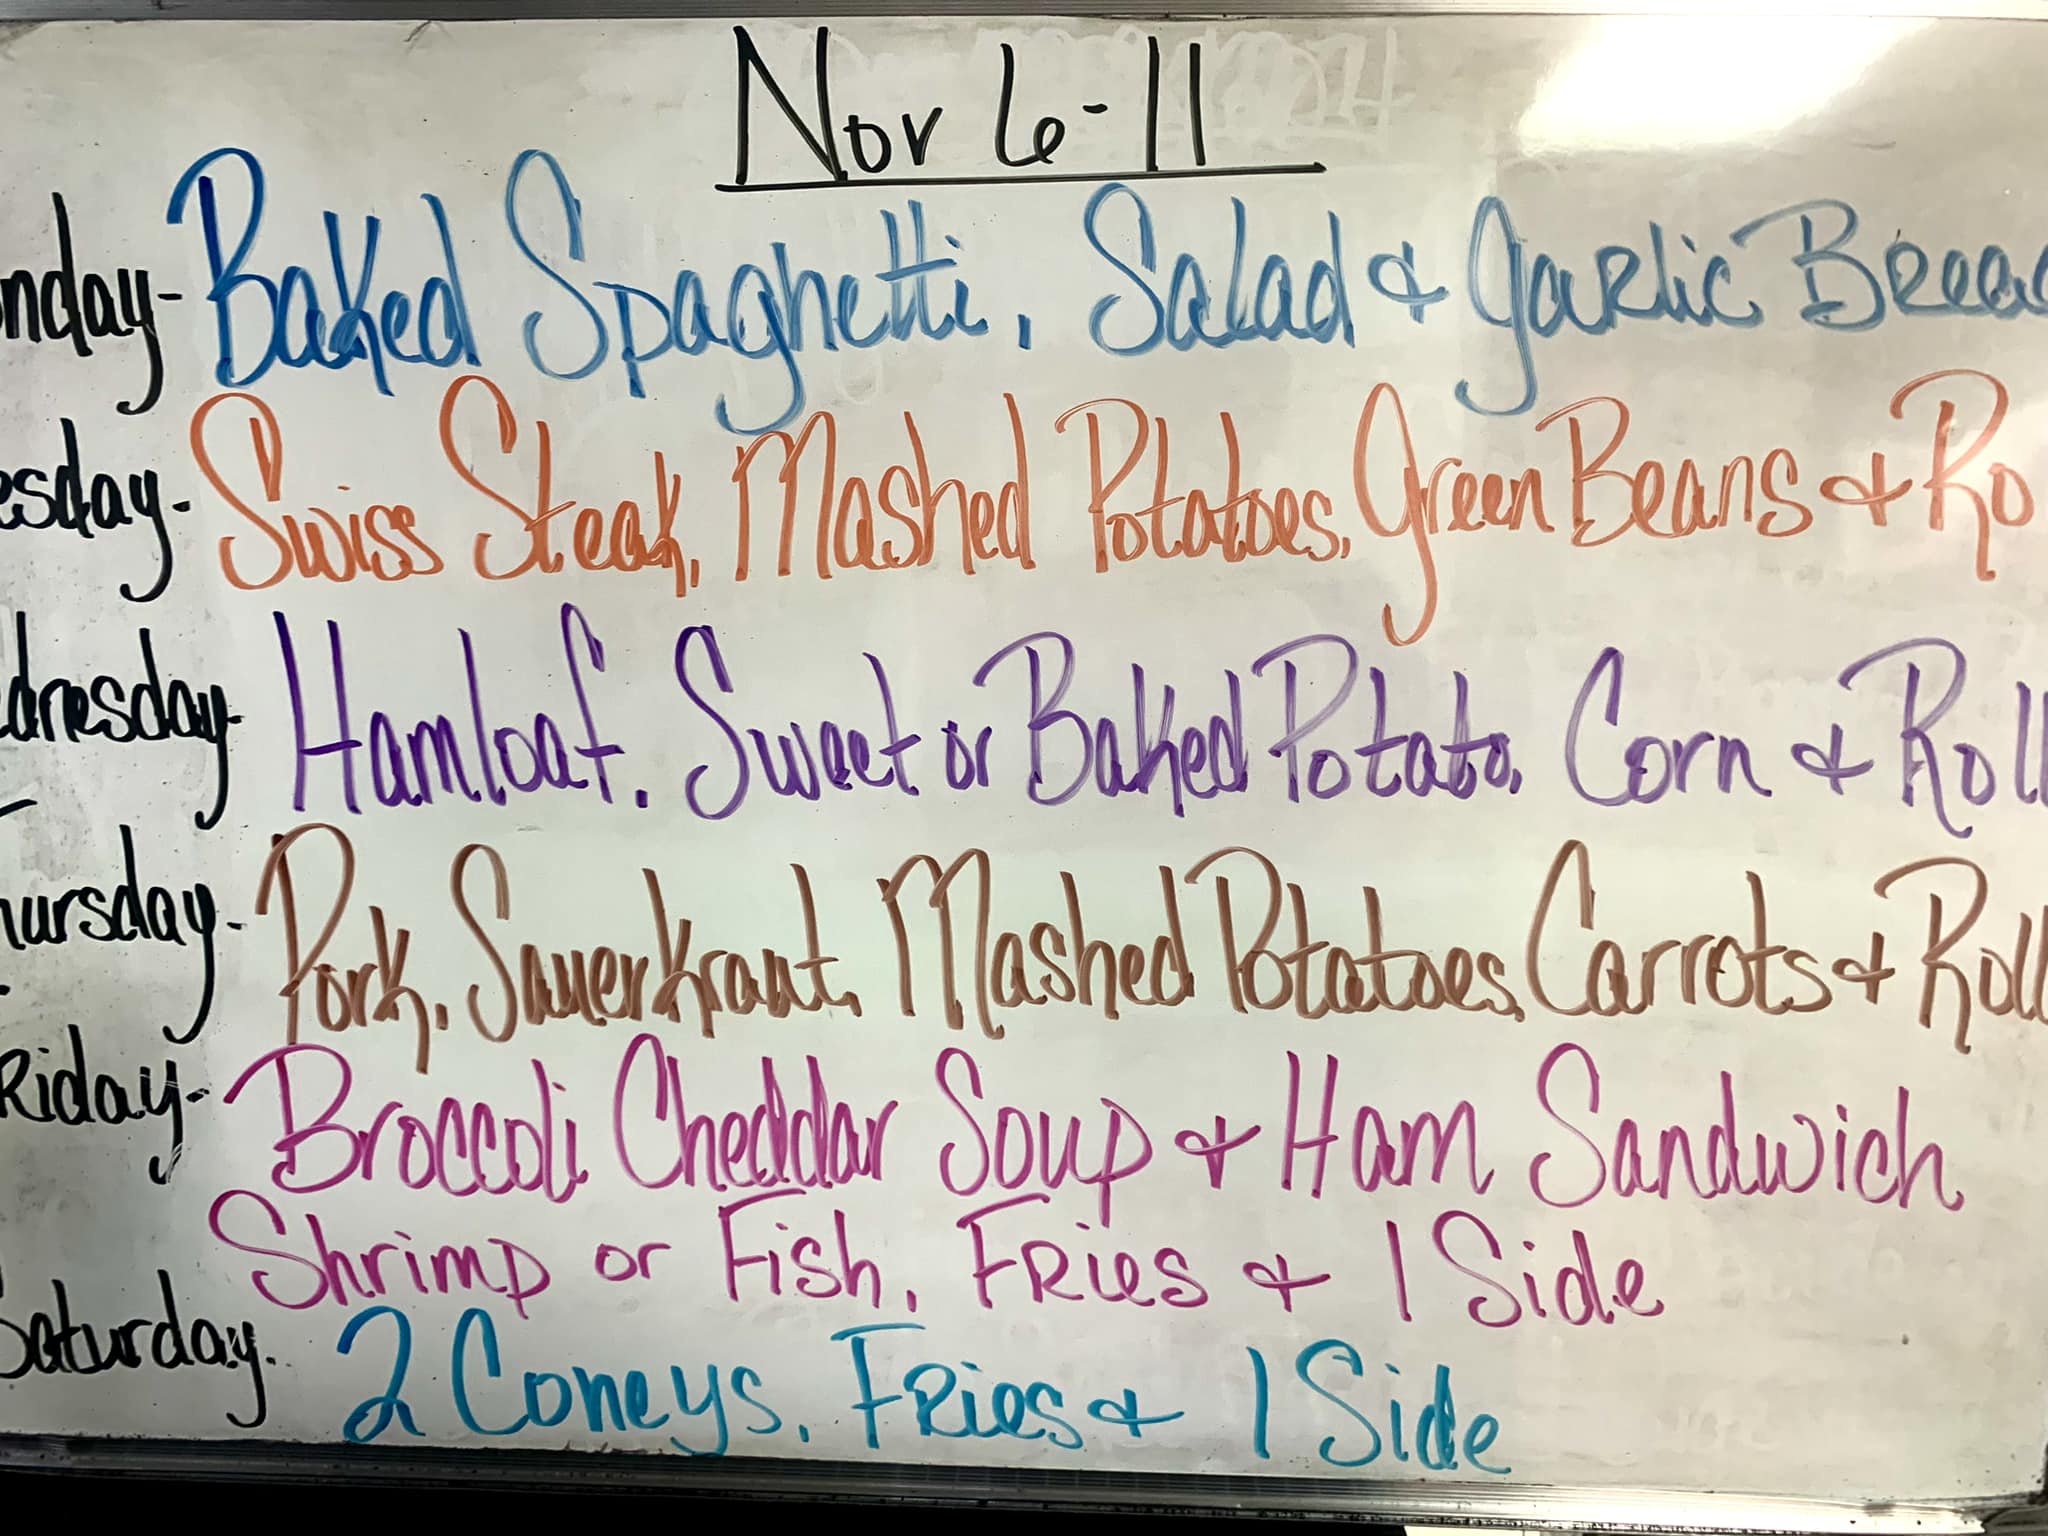 Nov 6-11
nday- Baked Spaghetti, Salad & Garlic Bread
esday- Swiss Steak, Mashed Potatoes, Green Beans & Ro
dnesday- Hamloaf, Sweet or Baked Potato, Corn & Roll
Thursday- Pork, Sauerkraut, Mashed Potatoes, Carrots & Roll
Friday- Broccoli Cheddar Soup & Ham Sandwich
Shrimp or Fish, Fries & 1 Side
Saturday- 2 Coneys, Fries & 1 Side